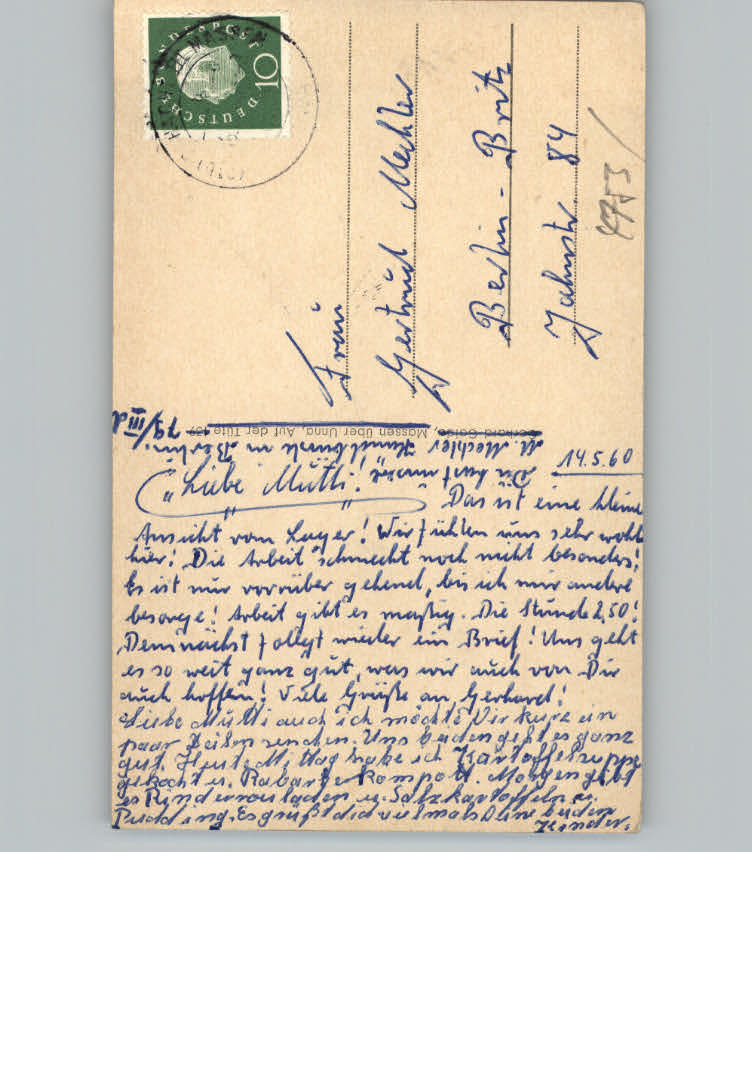 DEUTSCHE BUNDESPOST
10
MASSEN
Frau
Gertrud Mechler
Berlin - Britz
Jahnstr. 84
4753
Gerhard Gause, Massen über Unna, Auf der Tüte 69
79/III d
M. Mechler
in Berlin.
14.5.60
"Liebe Mutti!"
Das ist eine kleine
Ansicht vom Lager! Wir fühlen uns sehr wohl
hier! Die Arbeit schmeckt noch nicht besonders!
Es ist nur vorrüber gehend, bis ich mir andere
besorge! Arbeit gibt es maßig. Die Stunde 2,50!
Demnächst folgt wieder ein Brief! Uns geht
es so weit ganz gut, was wir auch von Dir
auch hoffen! Viele Grüße an Gerhard!
Liebe Mutti auch ich möchte Dir kurz ein
paar Zeilen senden. Uns beiden geht es ganz
gut. Heute Mittag habe ich Kartoffelsuppe
gekocht u. Rabarberkompott. Morgen gibt
es Rinderrouladen u. Salzkartoffeln u.
Pudding. Es grüßt dich vielmals Deine beiden
Kinder.